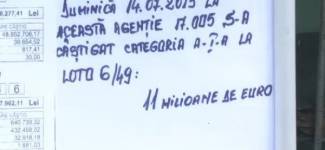 8.277,41 Lei
48.852.708,17
38.654,52
817,41
30,00
6
7.962,11 Lei
640.739,32
432.498,02
32.918,18
1.886,53
DUMINICĂ 14.07.2013 LA
ACEASTĂ AGENȚIE 17.005 S-A
CÂȘTIGAT CATEGORIA A-I-A LA
LOTO 6/49:
11 MILIOANE DE EURO